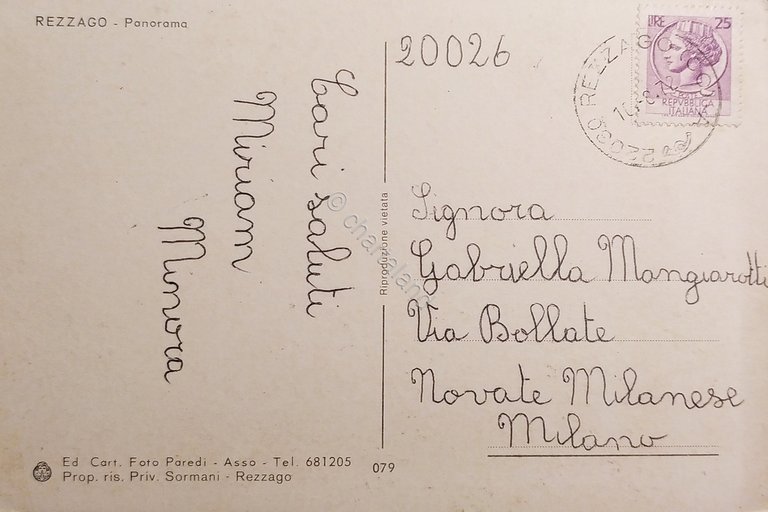 REZZAGO - Panorama
Cari saluti
Miriam
Minora
Ed Cart. Foto Paredi - Asso - Tel. 681205
Prop. ris. Priv. Sormani - Rezzago
079
Riproduzione vietata
20026
LIRE 25
REPVBBLICA
ITALIANA
22030 REZZAGO
Signora
Gabriella Mangiarotti
Via Bollate
Novate Milanese
Milano